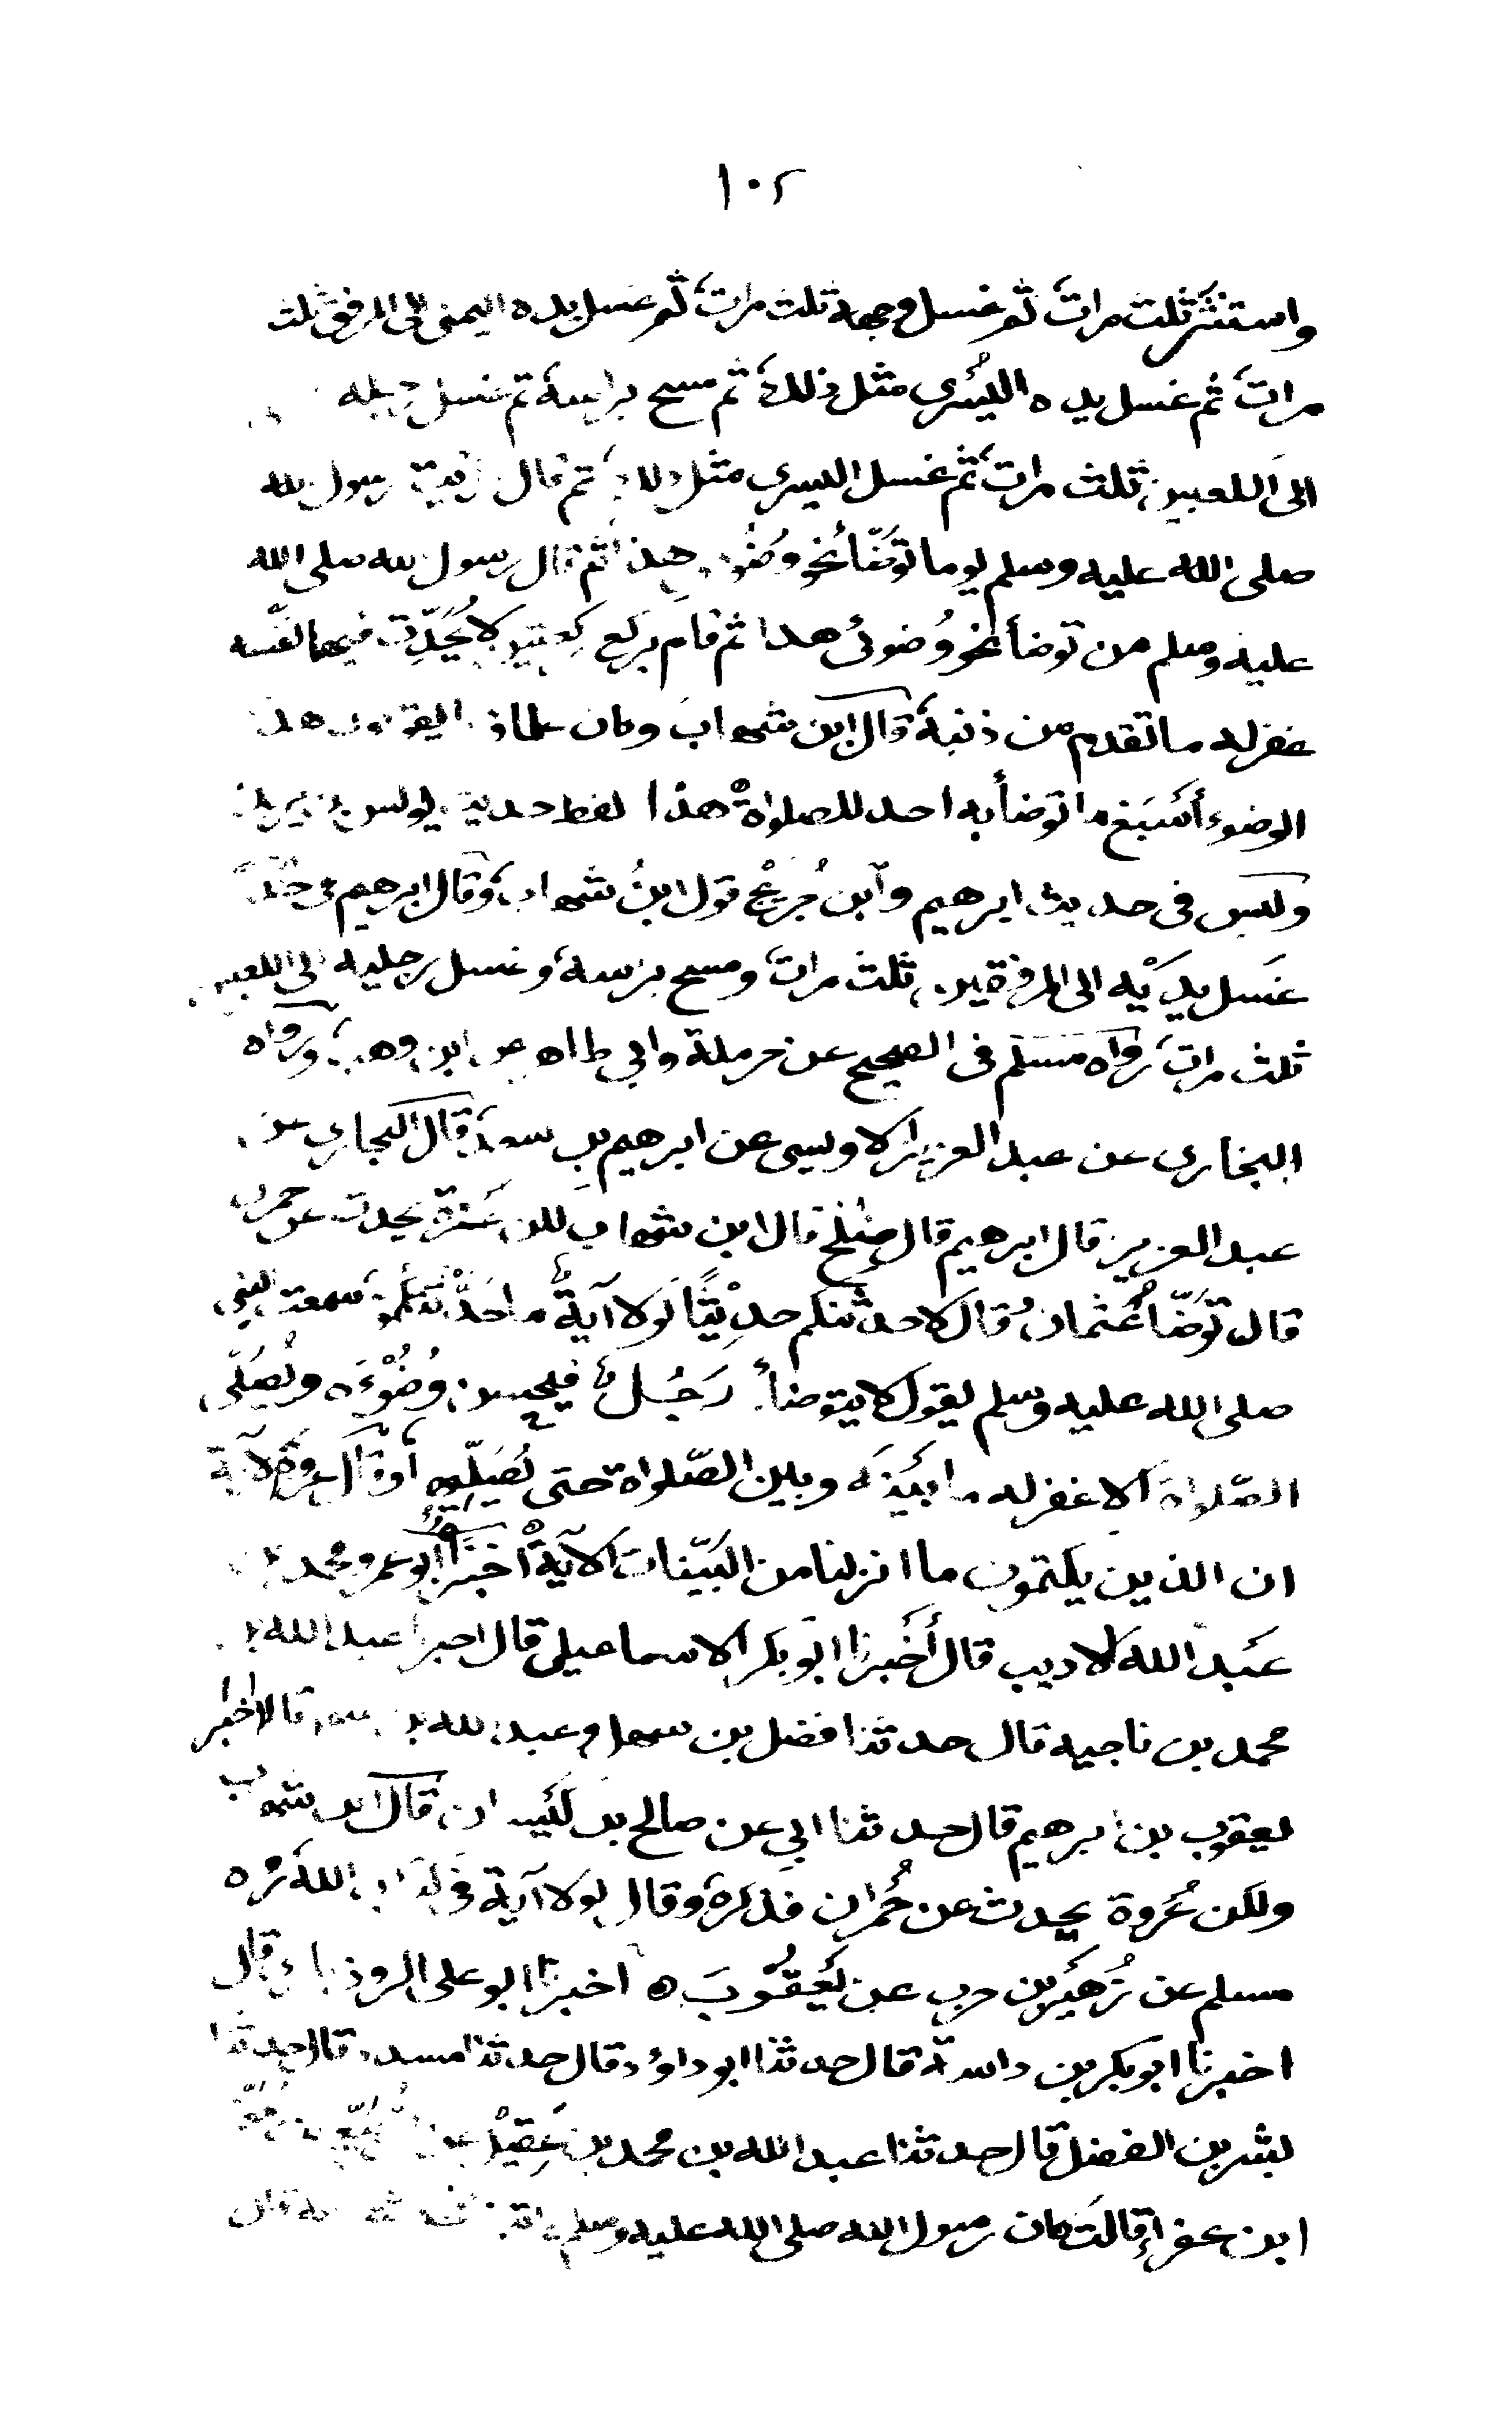 ١٠٢
واستنثر ثلث مرات ثم غسل وجهه ثلث مرات ثم غسل يده اليمنى الى المرفق ثلث
مرات ثم غسل يده اليُسرى مثل ذلك ثم مسح براسه ثم غسل رجله
الى الكعبين ثلث مرات ثم غسل اليسرى مثل ذلك ثم قال رايت رسول الله
صلى الله عليه وسلم يوما توضّأ نحو وُضُوئي هذا ثم قال رسول الله صلى الله
عليه وسلم من توضأ نحو وُضوئى هذا ثم قام يركع ركعتين لا يُحَدِّث فيهما نفسه
غفر له ما تقدم من ذنبه قال ابن شهاب وكان علماؤنا يقولون هذا
الوضوء أَسْبَغ ما توضأ به احد للصلوٰة هذا لفظ حديث يونس بن يزيد
وليس فى حديث ابرهيم وابن جُريْج قول ابنُ شهاب وقال ابرهيم فى حديثه
غَسل يديْه الى المرفقين ثلث مرات ومسح براسه وغسل رجليه الى الكعبين
ثلث مرات رواه مسلم فى الصحيح عن حرملة وابي طاهر عن ابن وهب ورواه
البخاري عن عبد العزيز الاويسى عن ابرهيم بنِ سعد قال البخاري عن
عبد العزيز قال ابرهيم قال صٰلح قال ابن شهاب لكن عُروة يحدث عن حمران
قال توَضّأ عُثمانُ قال لاحدثنكم حدِيْثًا لَولا آيةٌ ما حَدَّثْتكموه سمعت النبى
صلى الله عليه وسلم يقول لا يتوضأُ رَجُلٌ فيحسن وُضُوْءَه ويُصَلّى
الصّلوٰة الا غفر له ما بَيْنَه وبين الصّلوٰة حتى يُصَلّيها قال عروة الآية
ان الذين يكتمون ما انزلنا من البيّنات الآيةْ اخبرنا ابو عمرو محمد بن
عَبد الله الاديب قال أَخْبرنا ابو بكر الاسماعيلى قال اخبرنا عبد الله بن
محمد بن ناجيه قال حدثنا فضل بن سهل وعبد الله بن سعد قالا اخبرنا
يعقوب بن ابرهيم قال حدثنا ابي عن صالح بن كيسان قال ابن شهاب
ولكن عُروة يحدث عن حُمران فذكره وقال لولا آية فى كتاب الله رواه
مسلم عن زُهَيْر بن حرب عن يَعْقُوبَ ه اخبرنا ابو على الروذباري قال
اخبرنا ابو بكر بن داسة قال حدثنا ابو داؤد قال حدثنا مسدد قال حدثنا
بشر بن المفضل قال حدثنا عبد الله بن محمد بن عَقِيْل عن الرُبَيّع بنت مُعَوّذ
ابن عفراء قالت كان رسول الله صلى الله عليه وسلم